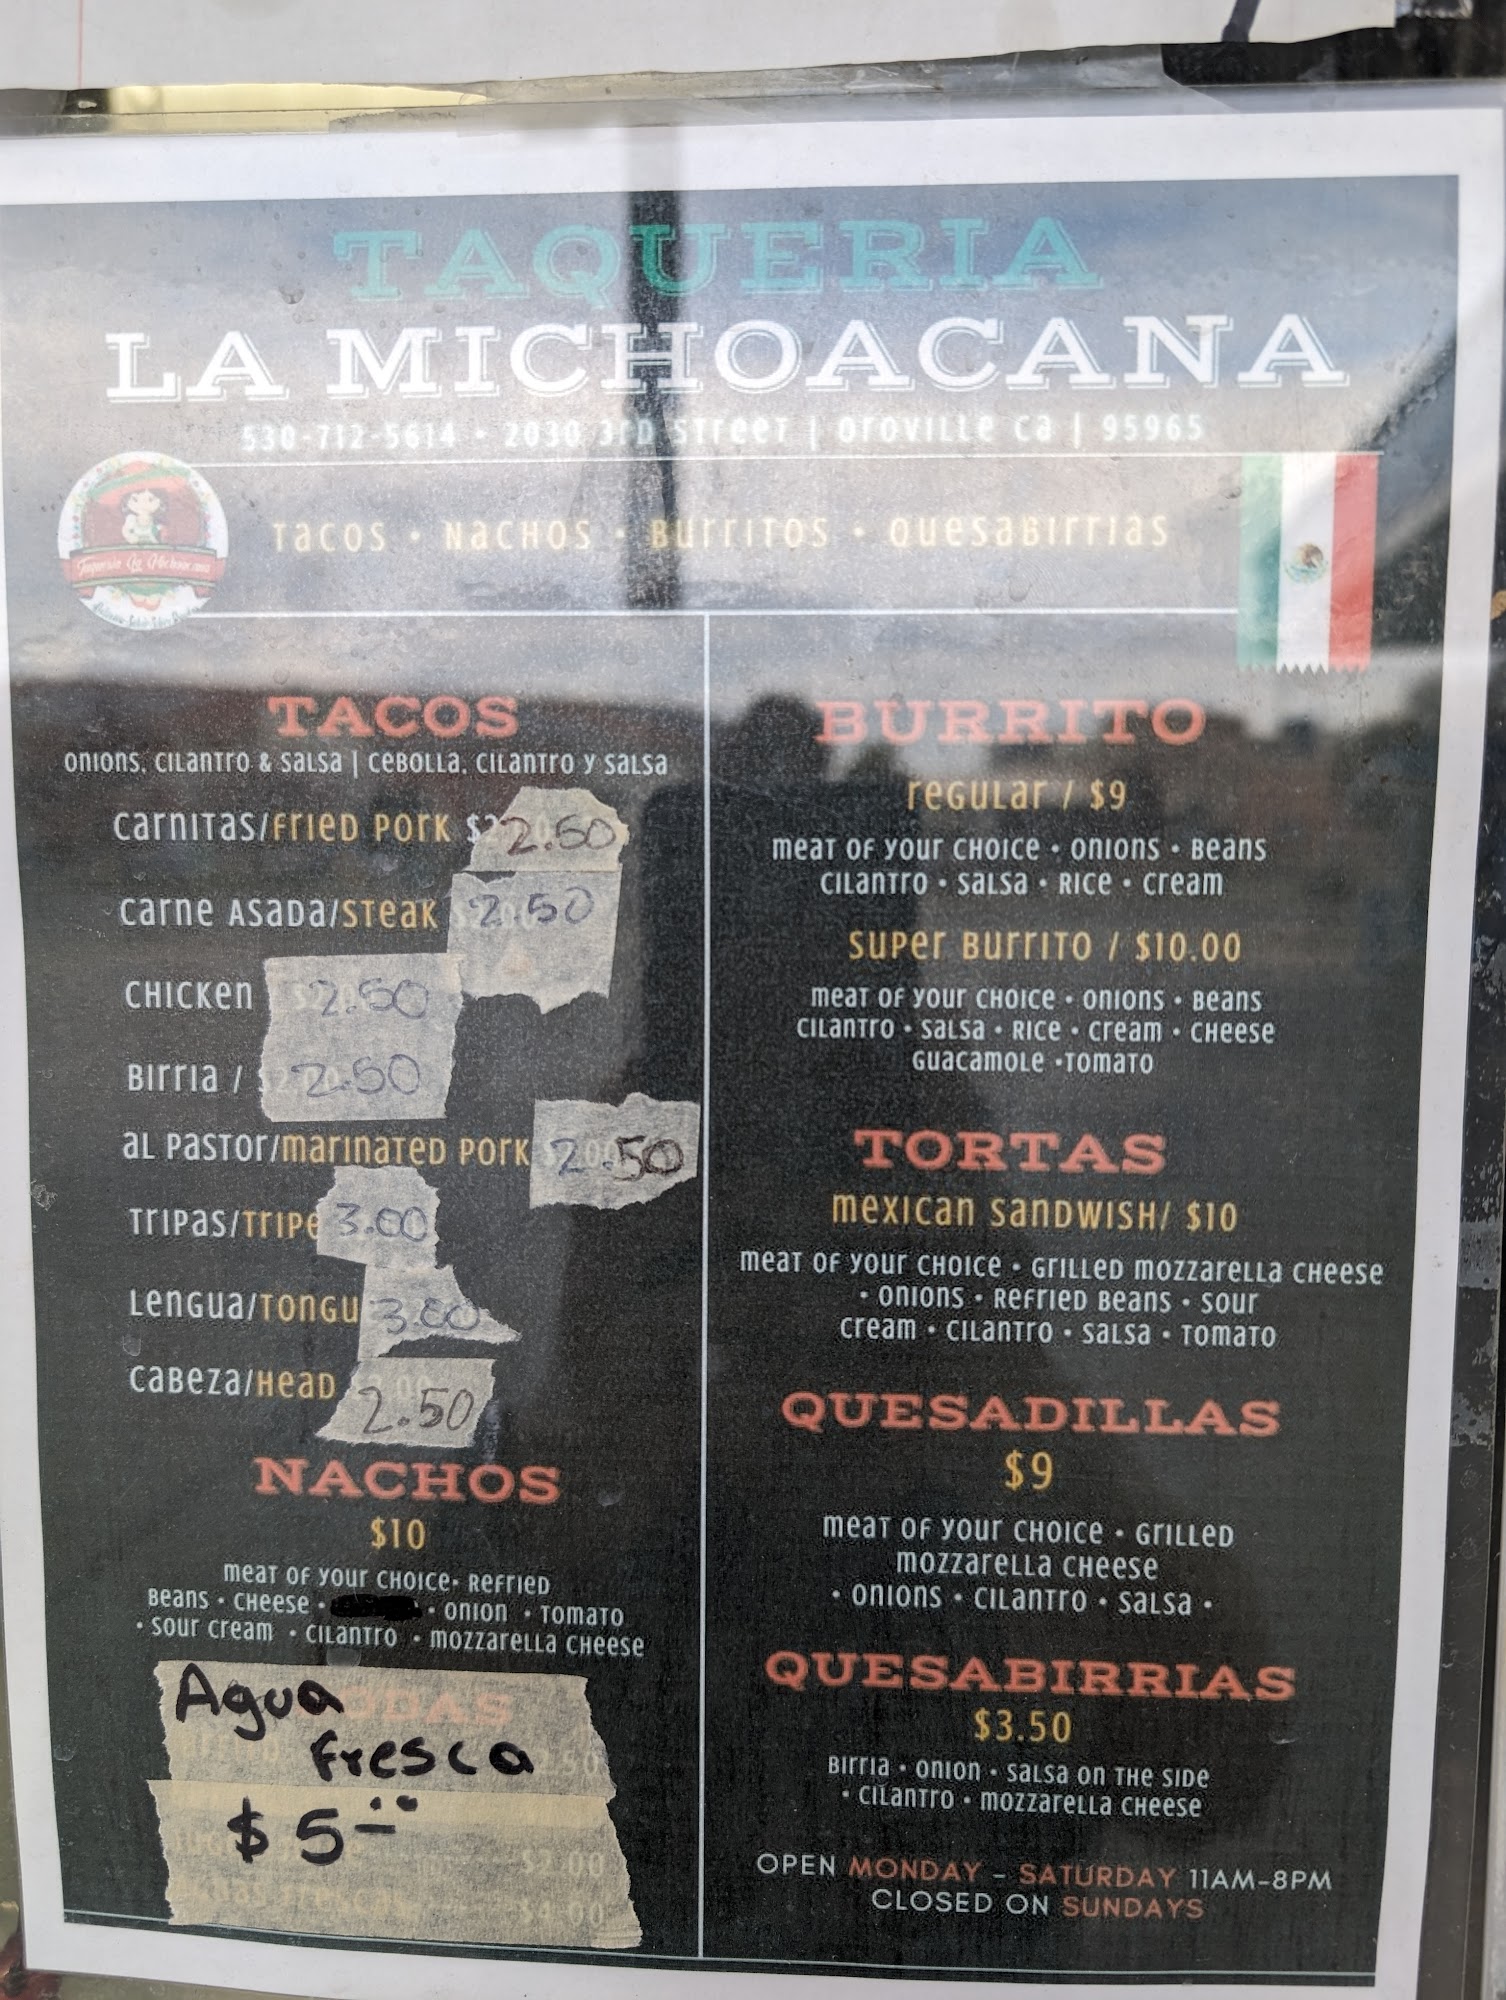 TAQUERIA
LA MICHOACANA
530-712-5614 • 2030 3rd Street | Oroville Ca | 95965
Tacos • Nachos • Burritos • Quesabirrias
Taqueria La Michoacana
TACOS
Onions, Cilantro & Salsa | Cebolla, Cilantro y Salsa
Carnitas/Fried Pork 2.50
Carne Asada/Steak 2.50
Chicken 2.50
Birria / 2.50
Al Pastor/Marinated Pork 2.50
Tripas/Tripe 3.00
Lengua/Tongu 3.00
Cabeza/Head 2.50
NACHOS
$10
Meat of your choice• Refried
Beans • Cheese • • Onion • Tomato
• Sour Cream • Cilantro • Mozzarella Cheese
Agua
fresca
$5
$2.00
$4.00
BURRITO
Regular / $9
Meat of your choice • Onions • Beans
Cilantro • Salsa • Rice • Cream
Super Burrito / $10.00
Meat of your choice • Onions • Beans
Cilantro • Salsa • Rice • Cream • Cheese
Guacamole •Tomato
TORTAS
Mexican Sandwish/ $10
Meat of your choice • Grilled Mozzarella Cheese
• Onions • Refried Beans • Sour
Cream • Cilantro • Salsa • Tomato
QUESADILLAS
$9
Meat of your choice • Grilled
Mozzarella Cheese
• Onions • Cilantro • Salsa •
QUESABIRRIAS
$3.50
Birria • Onion • Salsa on the side
• Cilantro • Mozzarella Cheese
OPEN MONDAY – SATURDAY 11AM-8PM
CLOSED ON SUNDAYS